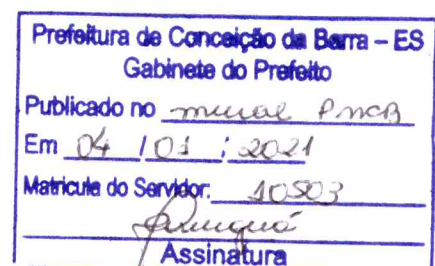 Prefeitura de Conceição da Barra – ES
Gabinete do Prefeito
Publicado no mural PMCB
Em 04 / 01 / 2021
Matrícula do Servidor: 10503
Assinatura